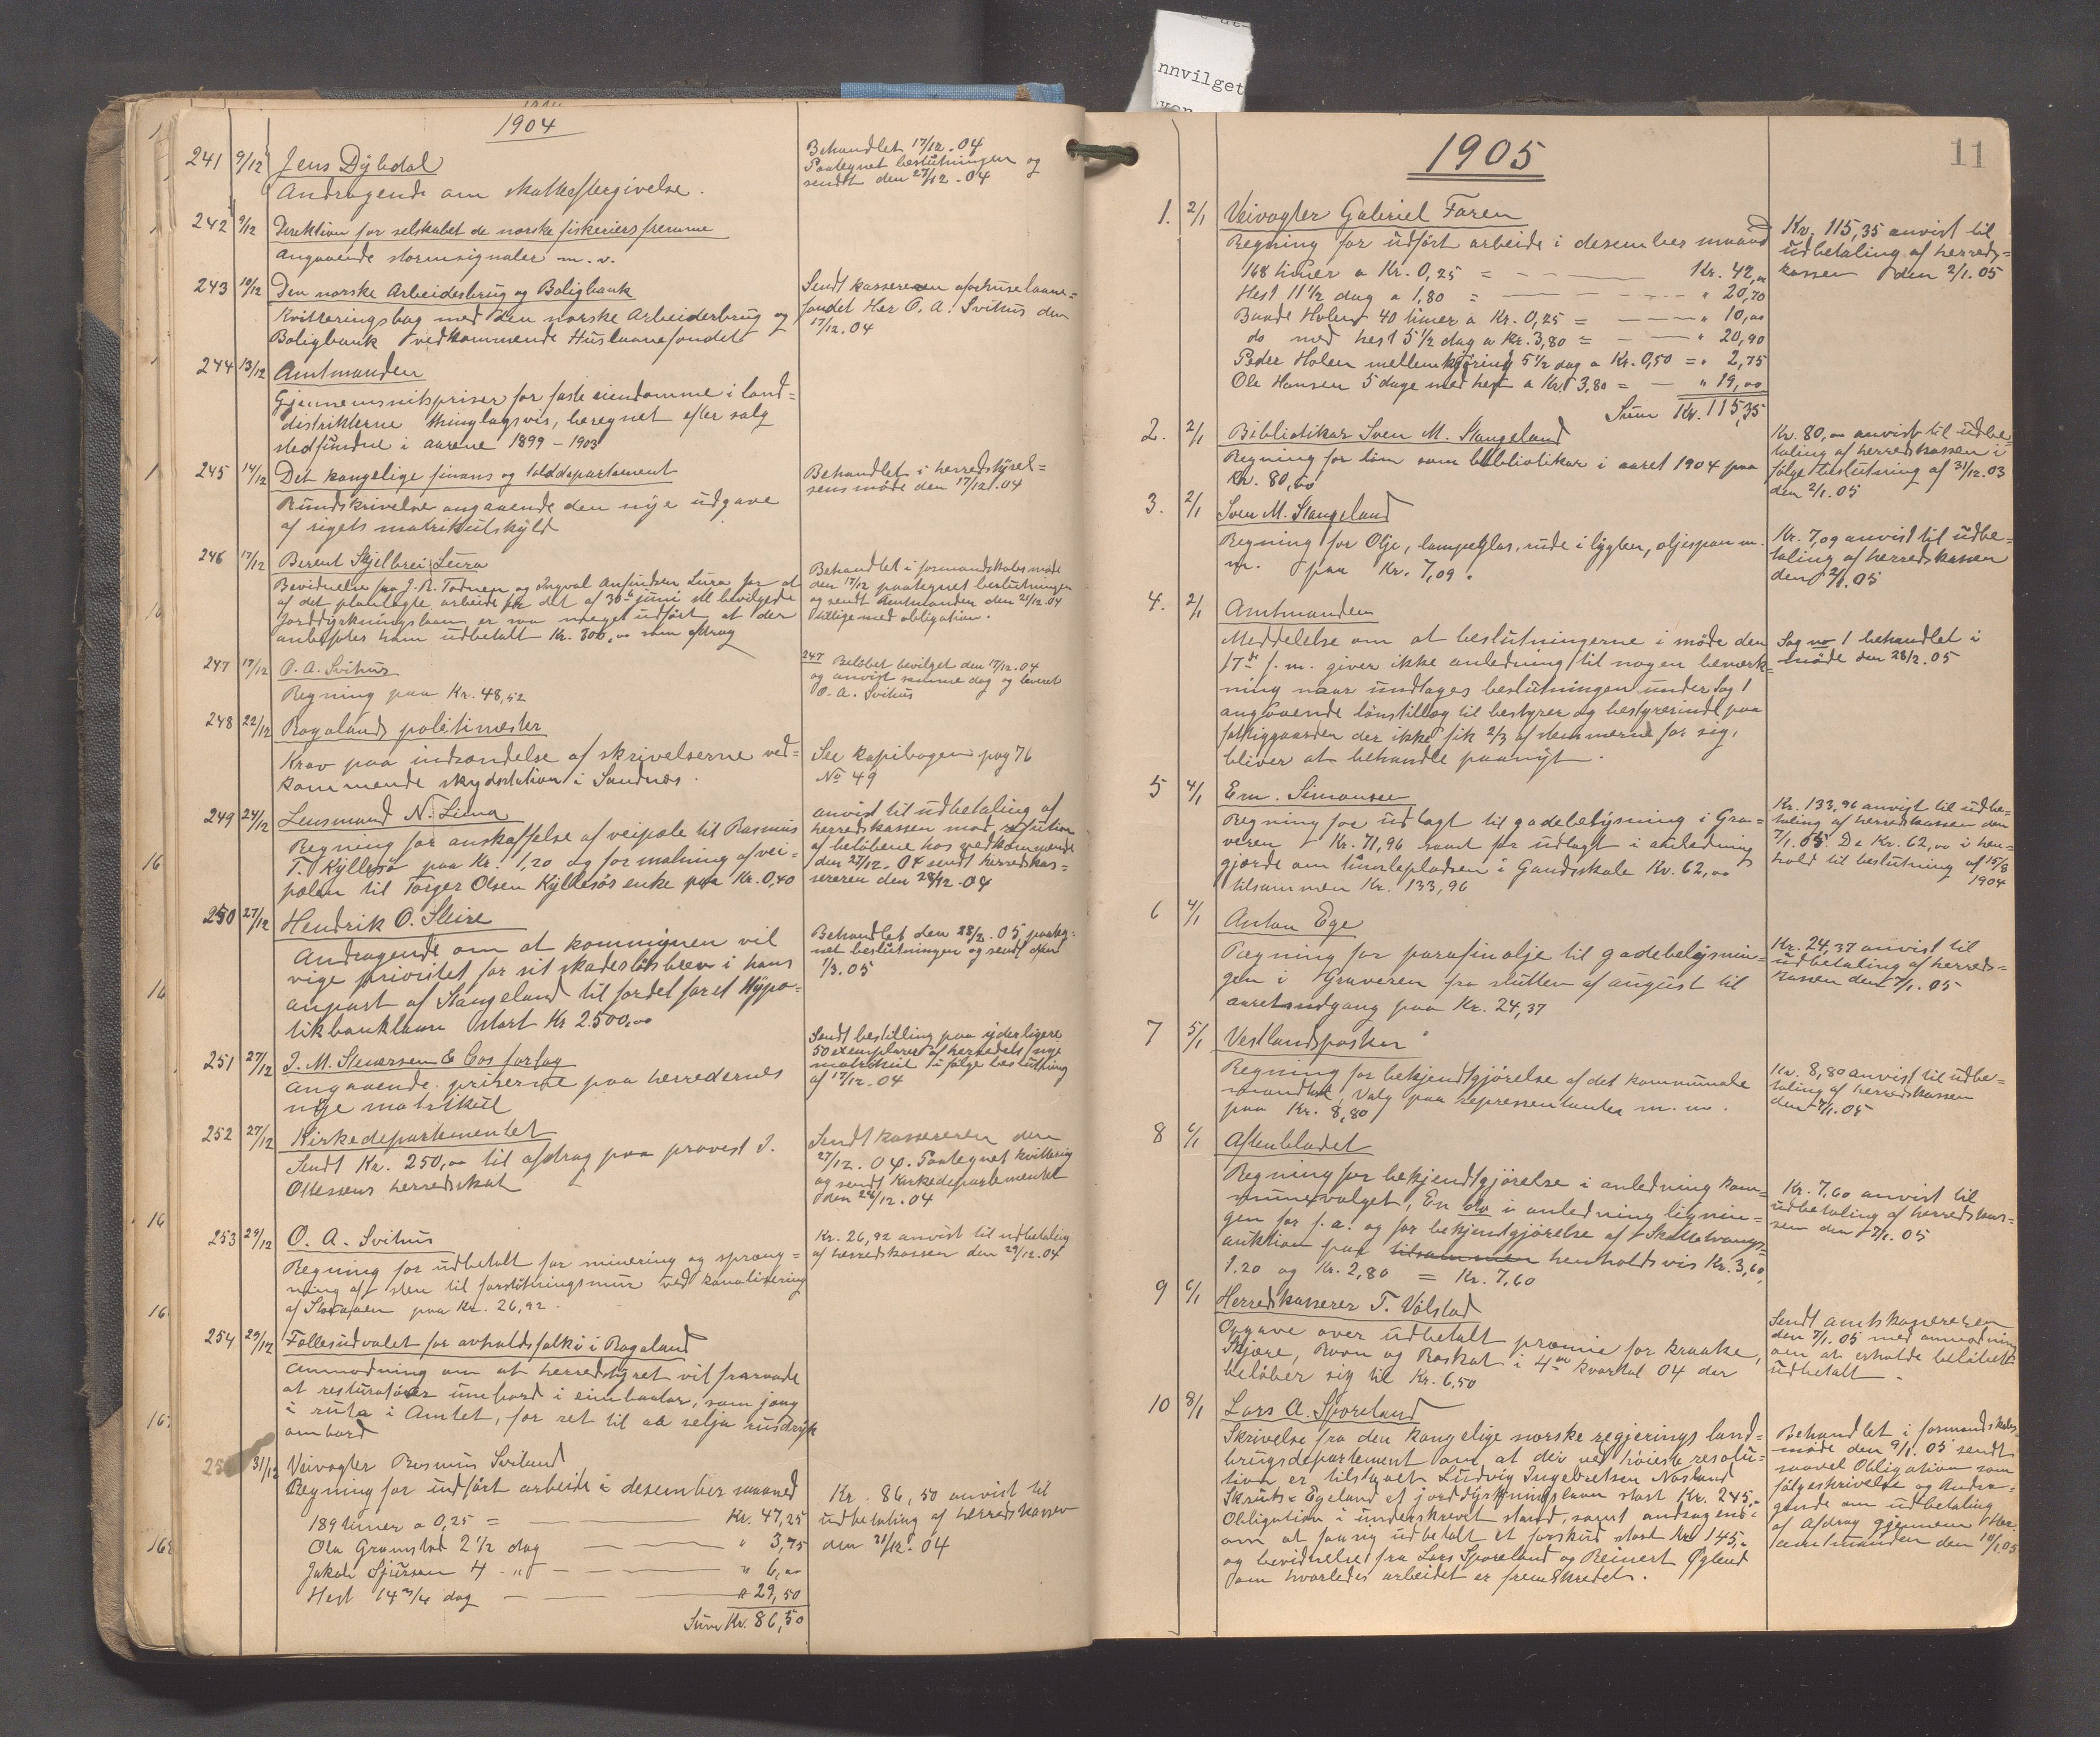 1904
241 9/12 Jens Dybdal
Andragende om skatteftergivelse.
Behandlet 17/12.04
Paategnet beslutningen og
sendt den 27/12.04
242 9/12 Direktion for selskabet de norske fiskeriers fremme
Angaaende stormsignaler m.v.
243 10/12 Den norske Arbeiderbrug og Boligbank
Kvitteringsbog med den norske Arbeiderbrug og
Boligbank vedkommende Huslaanefondet
Sendt kassereren af huselaane=
fondet Her O. A. Svihus den
17/12.04
244 13/12 Amtmanden
Gjennemsnitspriser for faste eiendomme i land=
distrikterne thinglagsvis, beregnet efter salg
stedfundne i aarene 1899 – 1903
245 14/12 Det kongelige finans og tolddepartement
Rundskrivelse angaaende den nye udgave
af rigets matrikulskyld
Behandlet i herredstyrel=
sens møde den 17/12.04
246 17/12 Berent Skjelbrei Lura
Bevidnelse fra J. R. Todnem og Ingval Anfindsen Lura for at
af det planlagte arbeide for det af 30te juni bevilgede
Jorddyrkningslaan er saa meget udført at der
anbefales ham udbetalt Kr. 300,00 som afdrag
Behandlet i formandskabs møde
den 17/12 paategnet beslutningen
og sendt Amtmanden den 21/12.04
tillige med obligation.
247 17/12 O. A. Svihus
Regning paa Kr. 48,52
247 Beløbet bevilget den 17/12.04
og anvist samme dag og leveret
O. A. Svihus
248 22/12 Rogalands politimester
Krav paa indsendelse af skrivelserne ved=
kommende skydsstation i Sandnes.
See kopibogen pag 76
No 49
249 24/12 Lensmand N. Lima
Regning for anskaffelse af veipæle til Rasmus
T. Kyllesø paa Kr. 1,20 og for maling af vei=
pælen til Torger Olsen Kyllesøs enke paa Kr. 0,40
anvist til udbetaling af
herredskassen mod refution
af beløbene hos vedkommende
den 27/12.04 sendt herredskas=
sereren den 28/12.04
250 27/12 Hendrik O. Sleire
Andragende om at kommunen vil
vige prioritet for sit skadesløsbrev i hans
anpart af Stangeland til fordel for et Hypo=
tikbanklaan stort Kr 2500,00
Behandlet den 28/2.05, paateg=
net beslutningen og sendt den
1/3.05
251 27/12 J. M. Stenersen & Cos forlag
angaaende priserne paa herredernes
nye matrikul
Sendt bestilling paa yderligere
50 exemplarer af herredets nye
matrikul i følge beslutning
af 17/12.04
252 27/12 Kirkedepartementet
Sendt Kr. 250,00 til afdrag paa provest J.
Ottessens herredsskat
Sendt kassereren den
27/12.04. Paategnet kvittering
og sendt Kirkedepartementet
den 28/12.04
253 29/12 O. A. Svihus
Regning for udbetalt for minering og spræng=
ning af sten til forstøtningsmur ved kanalisering
af Storaaen paa Kr. 26,92.
Kr. 26,92 anvist til udbetaling
af herredskassen den 29/12.04
254 29/12 Fællesudvalet for avholdsfolki i Rogaland
anmodning om at herredstyret vil fraraade
at resturatører umbord i eimbaatar, som jong
i ruta i Amtet, før ret til aa selja rusdrykk
ombord
31/12 Veivogter Rasmus Sviland
Regning for udført arbeide i desember maaned
189 timer a 0,25 = Kr. 47,25
Ola Gramstad 2 1/2 dag " 3,75
Jakob Sjursen 4 " " 6,00
Hest 14 3/4 dag " 29,50
Sum Kr. 86,50
Kr. 86,50 anvist til
udbetaling af herredskassen
den 31/12.04
11
1905
1. 2/1 Veivogter Gabriel Faren
Regning for udført arbeide i desember maaned
168 timer a Kr. 0,25 = Kr. 42,00
Hest 11 1/2 dag a 1,80 = " 20,70
Baade Holen 40 timer a Kr. 0,25 = " 10,00
do med hest 5 1/2 dag a Kr. 3,80 = " 20,90
Peder Holen mellemkjøring 5 1/2 dag a Kr. 0,50 = " 2,75
Ole Hansen 5 dage med hest a Kr. 3,80 = " 19,00
Sum Kr. 115,35
Kr. 115,35 anvist til
udbetaling af herreds=
kassen den 2/1.05
2. 2/1 Bibliotikar Sven M. Stangeland
Regning for løn som bibliotikar i aaret 1904 paa
Kr. 80,00
Kr. 80,00 anvist til udbe=
taling af herredskassen i
følge beslutning af 31/12.03
den 2/1.05
3. 2/1 Sven M. Stangeland
Regning for Olje, lampeglas, rude i lygten, oljespan m.
m. paa Kr. 7,09.
Kr. 7,09 anvist til udbe=
taling af herredskassen
den 2/1.05
4. 2/1 Amtmanden
Meddelelse om at beslutningerne i møde den
17de f.m. giver ikke anledning til nogen bemærk=
ning naar undtages beslutningen under Sag 1
angaaende lønstillæg til bestyrer og bestyrerinde paa
fattiggaarden der ikke fik 2/3 af stemmerne for sig,
bliver at behandle paanyt.
Sag no 1 behandlet i
møde den 28/2.05
5 4/1 Em. Simonsen
Regning for udlagt til gadebelysning i Gra=
veren Kr. 71,96 samt for udlagt i anledning
gjærde om tumlepladsen i Gandsskole Kr. 62,00
tilsammen Kr. 133,96
Kr. 133,96 anvist til udbe=
taling af herredskassen den
7/1.05. De Kr. 62,00 i hen=
hold til beslutning af 15/8
1904
6 4/1 Anton Ege
Regning for parafinolje til gadebelysnin=
gen i Graveren fra slutten af august til
aaretsudgang paa Kr. 24,37
Kr. 24,37 anvist til
udbetaling af herreds=
kassen den 7/1.05
7 5/1 Vestlandsposten
Regning for bekjendtgjørelse af det kommunale
mandtal, Valg paa repressentanter m.m.
paa Kr. 8,80
Kr. 8,80 anvist til udbe=
taling af herredskassen
den 7/1.05
8 6/1 Aftenbladet
Regning for bekjendtgjørelse i anledning kom=
munevalget, En do i anledning lignin=
gen for f.a. og for bekjendtgjørelse af Skattetvangs=
auktion paa tilsammen henholdsvis Kr. 3,60,
1.20 og Kr. 2,80 = Kr. 7,60
Kr. 7,60 anvist til
udbetaling af herredskas=
sen den 7/1.05
9 6/1 Herredskasserer T. Vølstad
Opgave over udbetalt præmie for kraake,
Skjære, Ravn og Røskat i 4de kvartal 04 der
beløber sig til Kr. 6.50
Sendt amtskassereren
den 7/1.05 med anmodning
om at erholde beløbet
udbetalt.
10 8/1 Lars A. Sporeland
Skrivelse fra den kongelige norske regjerings land=
brugsdepartement om at der ved høieste resolu=
tion er tilstaaet Ludvig Ingebretsen Nasland
Skruts Egeland et jorddyrkningslaan stort Kr. 245,-
Obligation i underskrevet stand, samt andragende
om at faa sig udbetalt et forskud stort Kr 145,-
og bevidnelse fra Lars Sporeland og Reinert Øglend
om hvorledes arbeidet er fremskredet.
Behandlet i formandskabs
møde den 9/1.05 sendt
saavel Obligation som
følgeskrivelse og Andra=
gende om udbetaling
af Afdrag gjennem Her
amtmanden den 10/1.05
nnvilget